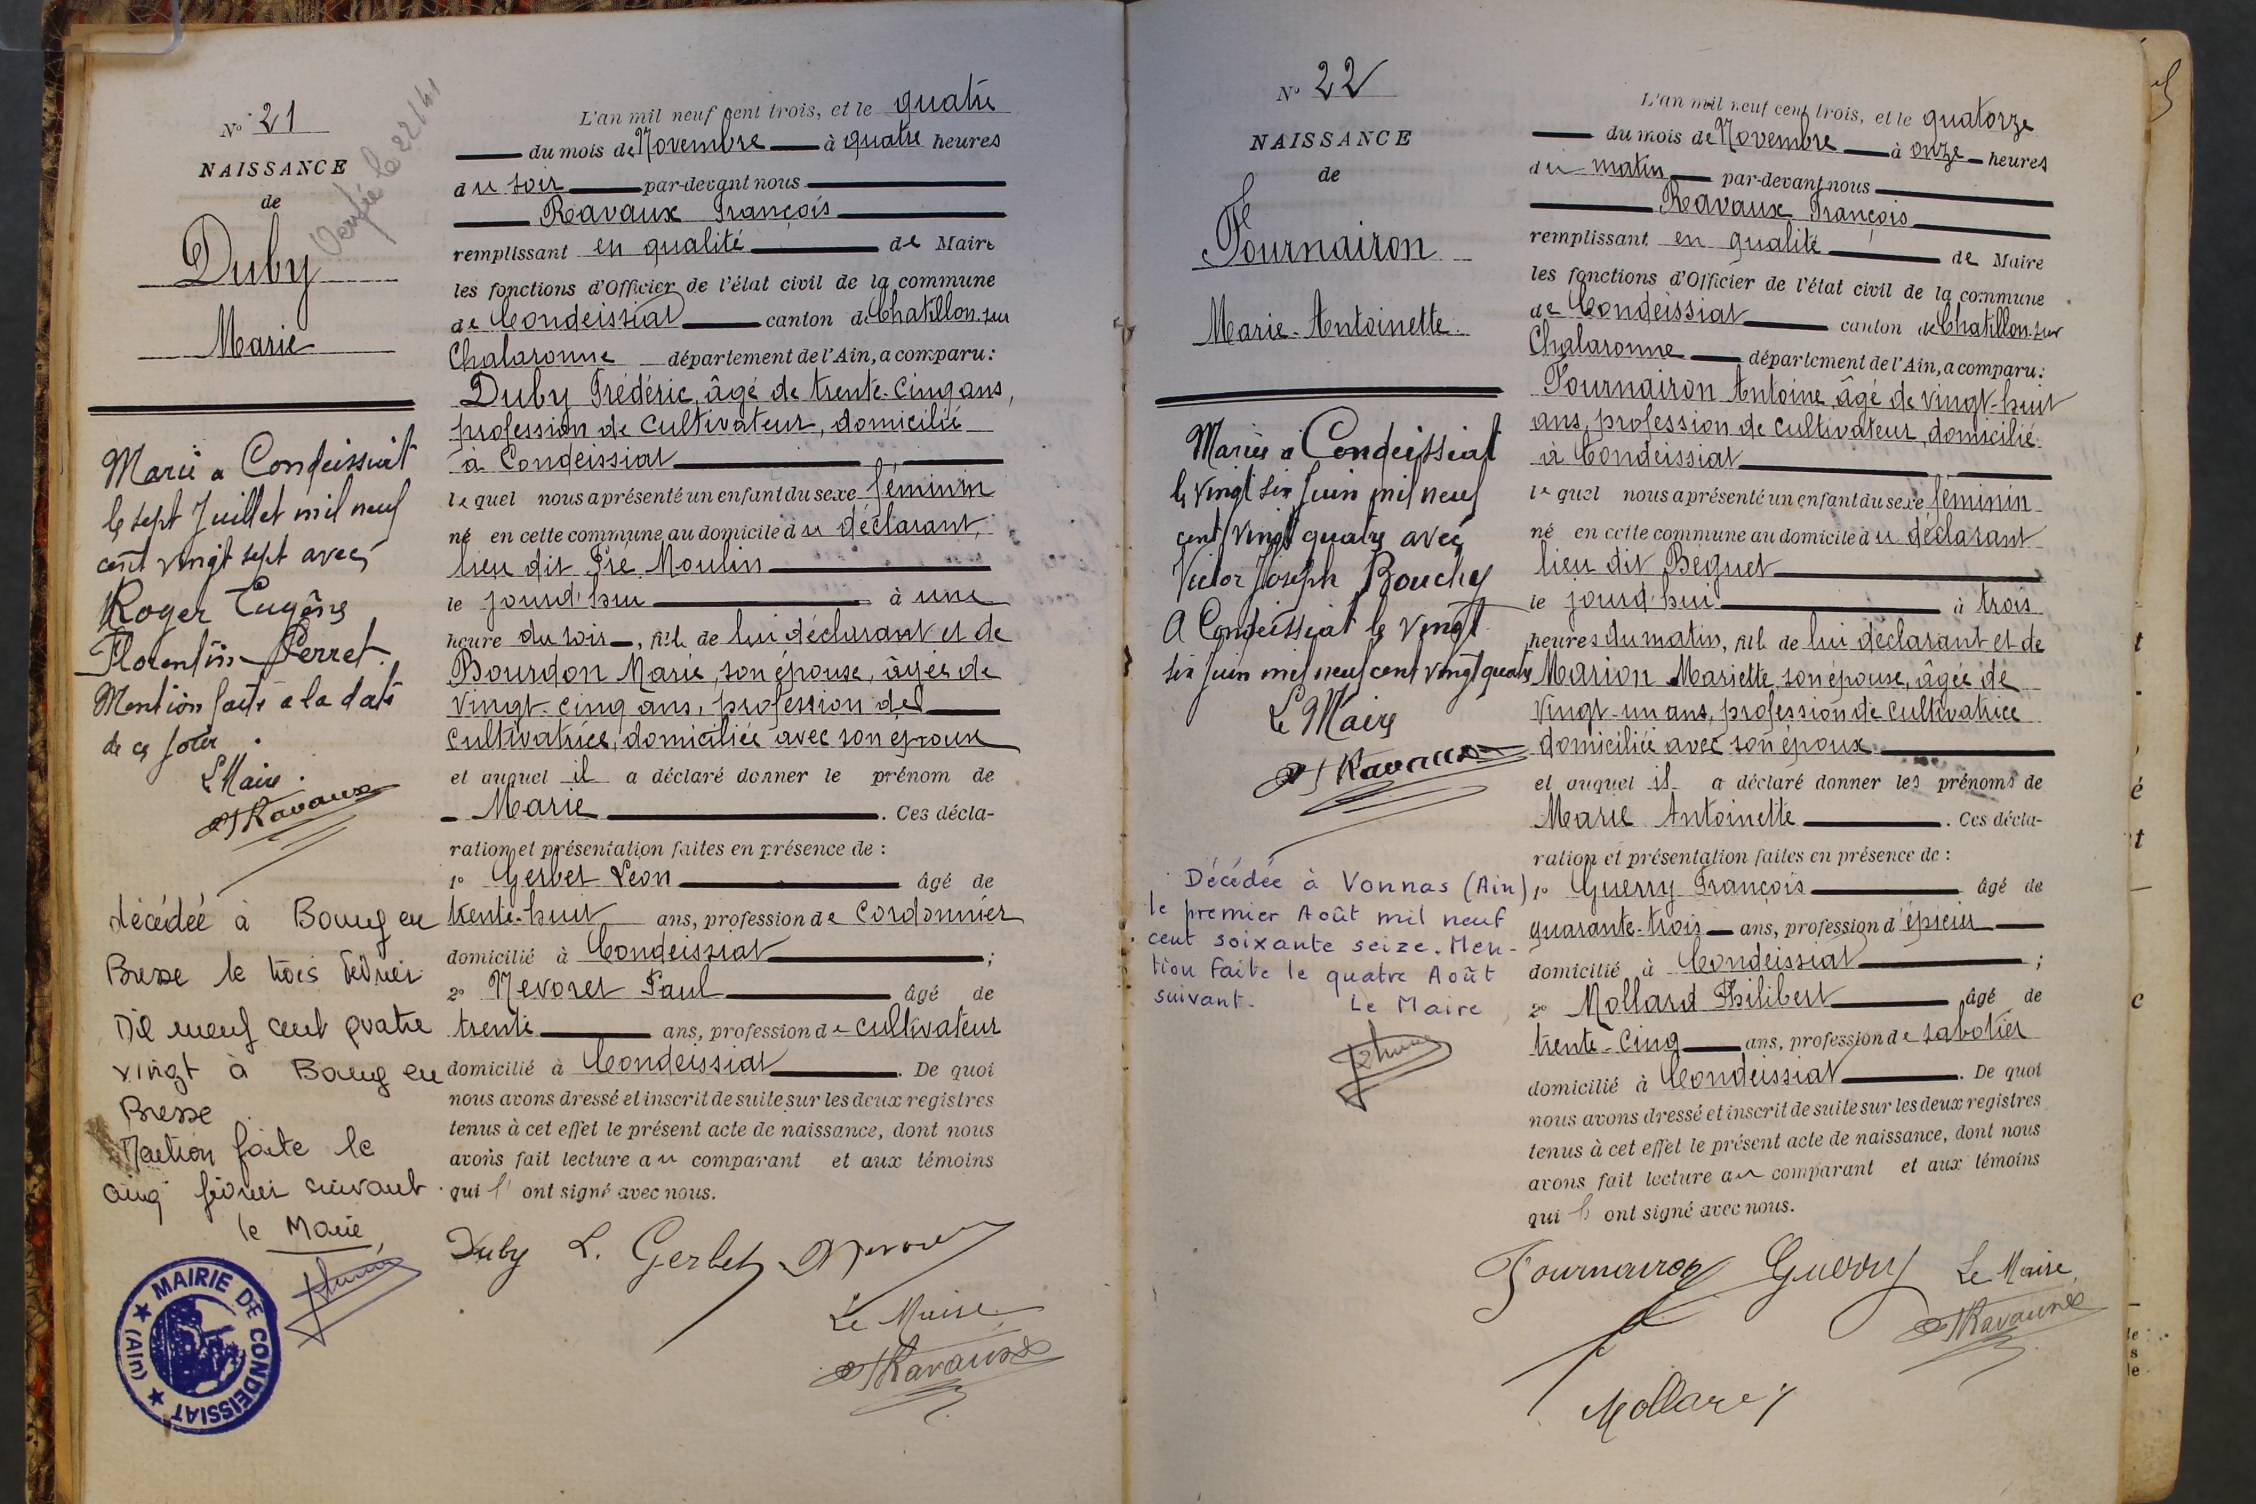 N° 21
NAISSANCE
de
Duby
Marie
Vérifié le 22/1/41
Marié à Condeissiat
le sept Juillet mil neuf
cent vingt sept avec
Roger Eugène
Florentin Perret.
Mention faite à la date
de ce jour.
Le Maire.
Ravaux
décédée à Bourg en
Bresse le trois février
Mil neuf cent quatre
vingt à Bourg en
Bresse
Mention faite le
cinq février suivant
le Maire,
MAIRIE DE CONDEISSIAT
(Ain)
L'an mil neuf cent trois, et le quatre
du mois de Novembre à quatre heures
du soir par-devant nous
Ravaux François
remplissant en qualité de Maire
les fonctions d'Officier de l'état civil de la commune
de Condeissiat canton de Chatillon-sur
Chalaronne département de l'Ain, a comparu:
Duby Frédéric, âgé de trente-cinq ans,
profession de cultivateur, domicilié
à Condeissiat
lequel nous a présenté un enfant du sexe féminin
né en cette commune au domicile du déclarant,
lieu dit Pré Moulin
le jourd'hui à une
heure du soir, fils de lui déclarant et de
Bourdon Marie, son épouse, âgée de
vingt-cinq ans, profession de
cultivatrice, domiciliée avec son époux
et auquel il a déclaré donner le prénom de
Marie. Ces décla-
ration et présentation faites en présence de :
1° Gerbet Léon âgé de
trente-huit ans, profession de cordonnier
domicilié à Condeissiat ;
2° Nevoret Paul âgé de
trente ans, profession de cultivateur
domicilié à Condeissiat. De quoi
nous avons dressé et inscrit de suite sur les deux registres
tenus à cet effet le présent acte de naissance, dont nous
avons fait lecture au comparant et aux témoins
qui l' ont signé avec nous.
Duby L. Gerbet Nevoret
Le Maire
Ravaux
N° 22
NAISSANCE
de
Fournairon
Marie-Antoinette
Mariée à Condeissiat
le vingt six Juin mil neuf
cent vingt quatre avec
Victor Joseph Bouchy
A Condeissiat le vingt
six Juin mil neuf cent vingt quatre
Le Maire
Ravaux
Décédée à Vonnas (Ain)
le premier Août mil neuf
cent soixante seize. Men-
tion faite le quatre Août
suivant. Le Maire
L'an mil neuf cent trois, et le quatorze
du mois de Novembre à onze heures
du matin par-devant nous
Ravaux François
remplissant en qualité de Maire
les fonctions d'Officier de l'état civil de la commune
de Condeissiat canton de Chatillon-sur
Chalaronne département de l'Ain, a comparu:
Fournairon Antoine, âgé de vingt-huit
ans, profession de cultivateur, domicilié
à Condeissiat
lequel nous a présenté un enfant du sexe féminin
né en cette commune au domicile du déclarant
lieu dit Béguet
le jourd'hui à trois
heures du matin, fils de lui déclarant et de
Marion Mariette, son épouse, âgée de
vingt-un ans, profession de cultivatrice
domiciliée avec son époux
et auquel il a déclaré donner les prénoms de
Marie Antoinette. Ces décla-
ration et présentation faites en présence de :
1° Guerry François âgé de
quarante-trois ans, profession d'épicier
domicilié à Condeissiat ;
2° Mollard Philibert âgé de
trente-cinq ans, profession de sabotier
domicilié à Condeissiat. De quoi
nous avons dressé et inscrit de suite sur les deux registres
tenus à cet effet le présent acte de naissance, dont nous
avons fait lecture au comparant et aux témoins
qui l' ont signé avec nous.
Fournairon Guerry Le Maire
Ravaux
Mollard